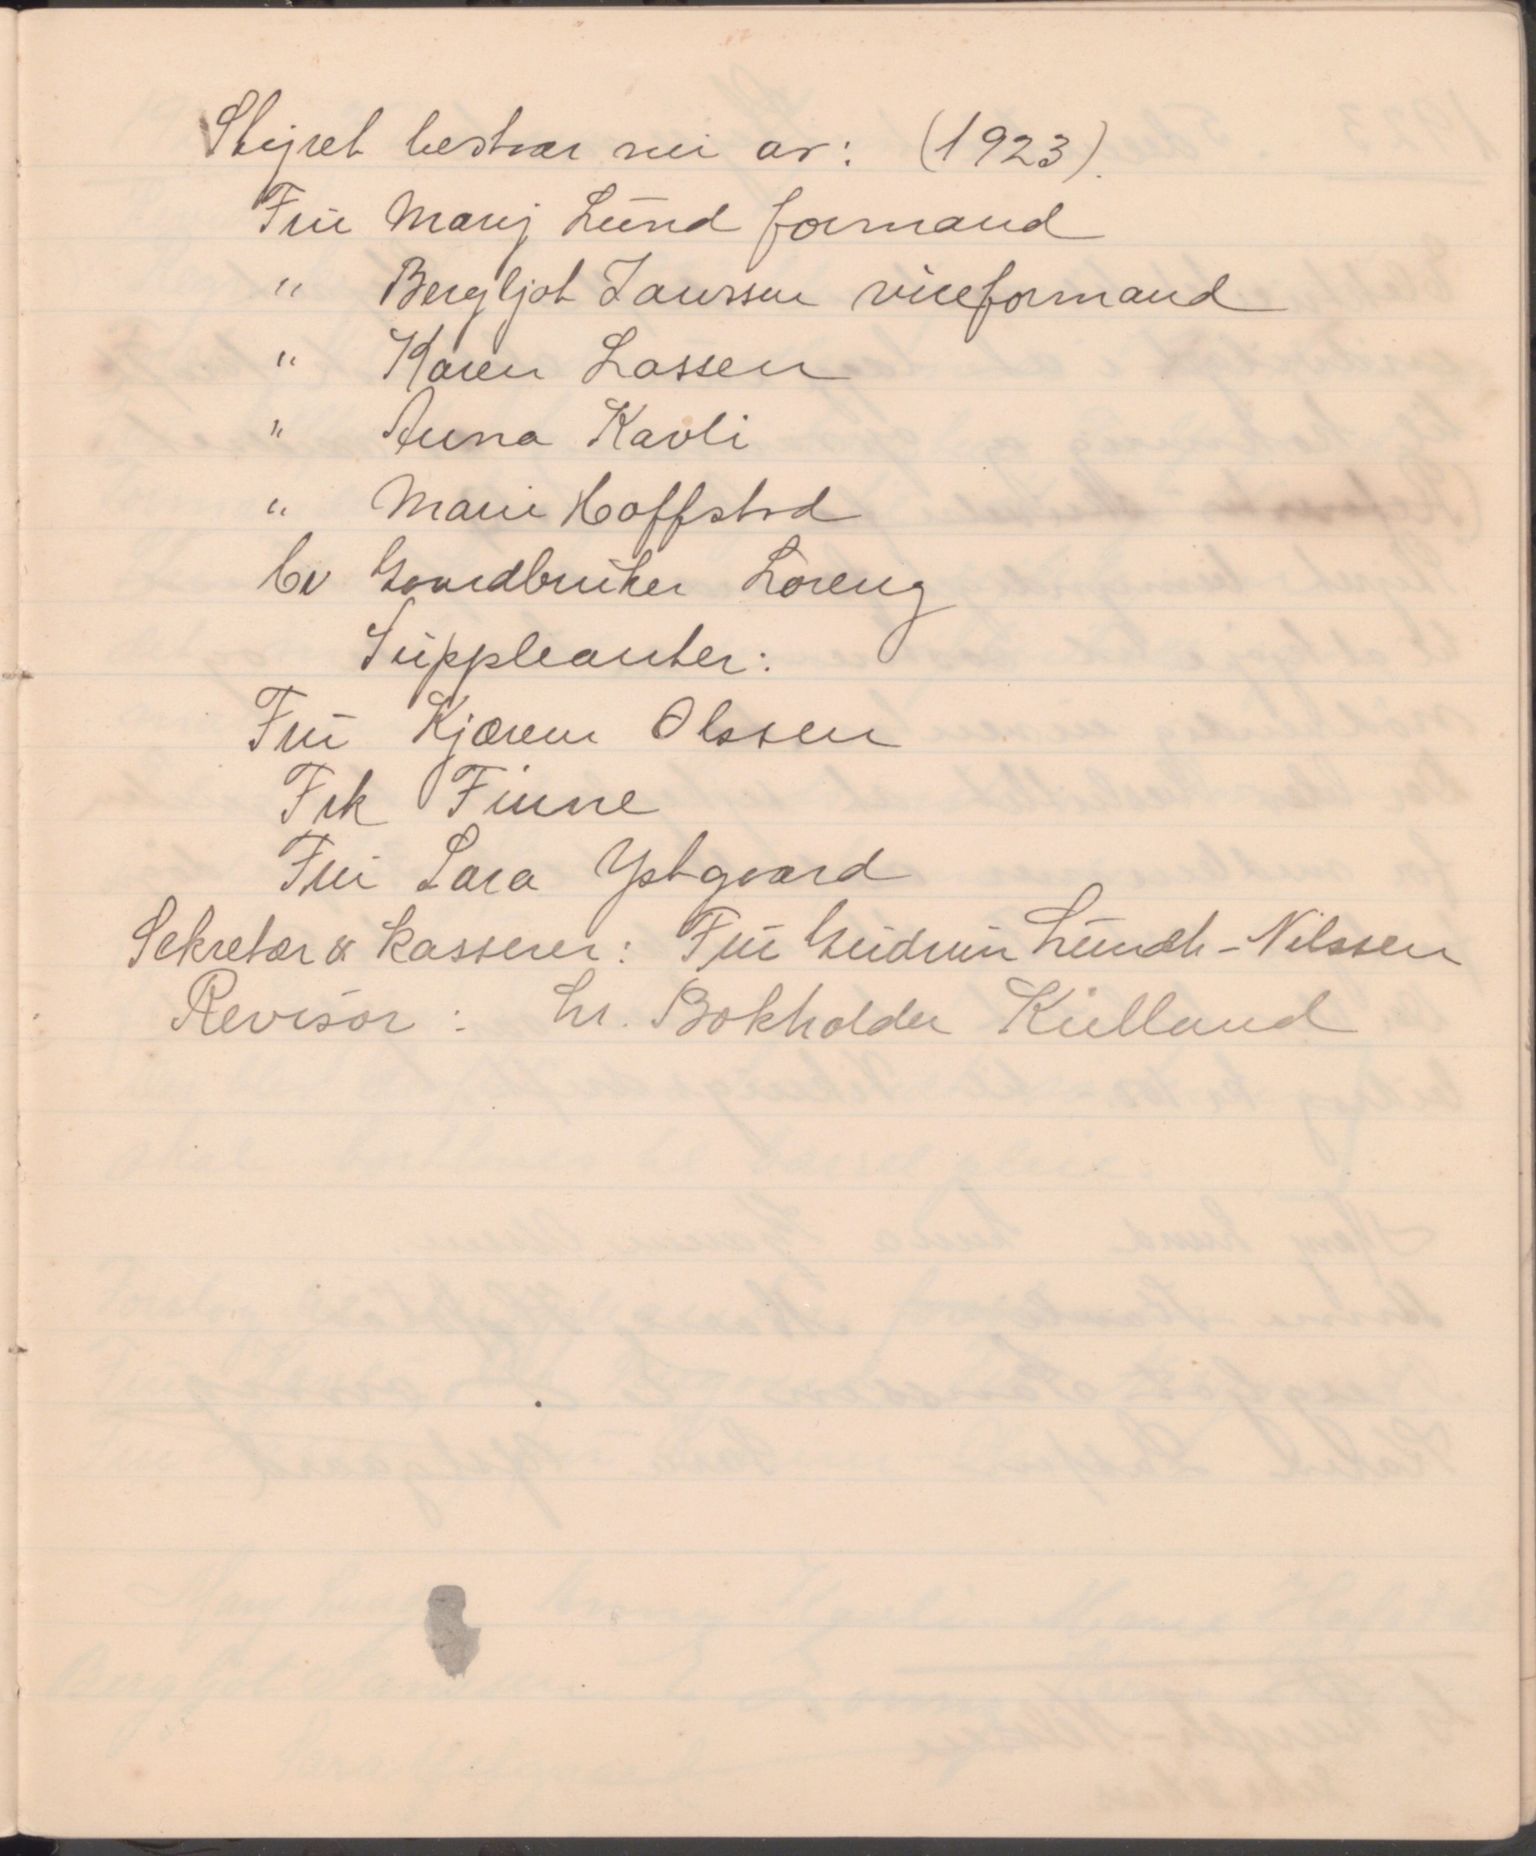 Styret bestaar nu av: (1923).
Fru Mary Lund formand
" Bergljot Janssen viceformand
" Karen Lassen
" Anna Kavli
" Marie Hoffstad
hr Gaardbruker Loreng
Suppleanter:
Fru Kjærem Olssen
Frk Finne
Fru Sara Ystgaard
Sekretær & kasserer: Fru Gudrun Lundh-Nilssen
Revisor: hr. Bokholder Kielland